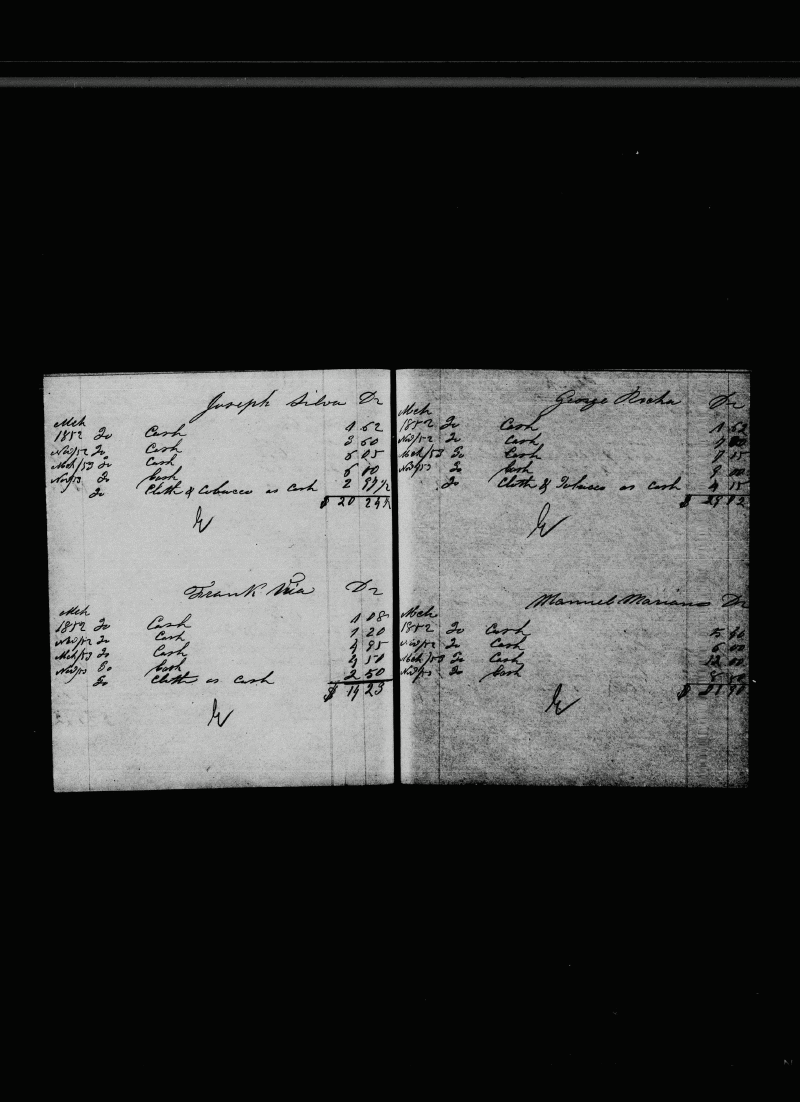 Joseph Silva Dr
Mch
1852 To Cash 1 62
Nov/52 To Cash 3 60
Mch/53 To Cash 6 05
Nov/53 To Cash 6 00
To Cloth & Tobacco as Cash 2 97 1/2
$ 20 24 1/2
Frank Via Dr
Mch
1852 To Cash 1 08
Nov/52 To Cash 1 20
Mch/53 To Cash 4 95
Nov/53 To Cash 4 50
To Cloth as Cash 2 50
$ 14 23
George Rocha Dr
Mch
1852 To Cash 1 62
Nov/52 To Cash
Mch/53 To Cash 8 15
Nov/53 To Cash 9 00
To Cloth & Tobacco as Cash 4 15
$
Manuel Mariano Dr
Mch
1852 To Cash 5 40
Nov/52 To Cash 6 00
Mch/53 To Cash 12 00
Nov/53 To Cash
$